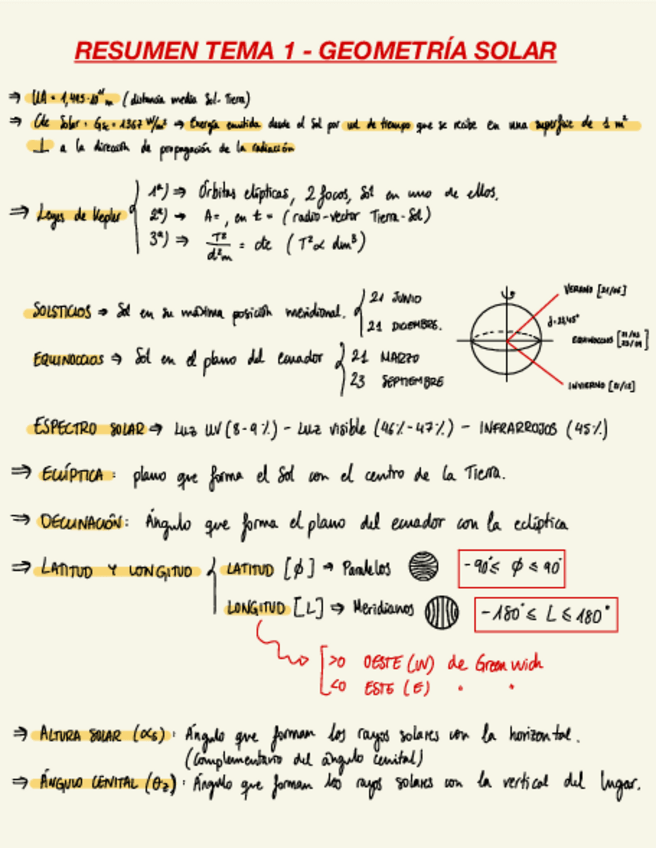 RESUMEN TEMA 1 - GEOMETRÍA SOLAR
⇒ UA = 1,495·10¹¹ m (distancia media Sol-Tierra)
⇒ Cte Solar: Gsc = 1367 W/m² ⇒ Energía emitida desde el Sol por ud de tiempo que se recibe en una superficie de 1 m²
⊥ a la dirección de propagación de la radiación
⇒ Leyes de Kepler
1ª) ⇒ Órbitas elípticas, 2 focos, Sol en uno de ellos.
2ª) → A=, en t = (radio-vector Tierra-Sol)
3ª) ⇒ T²/d³m = cte (T² ∝ dm³)
SOLSTICIOS ⇒ Sol en su máxima posición meridional.
21 JUNIO
21 DICIEMBRE.
EQUINOCCIOS ⇒ Sol en el plano del ecuador
21 MARZO
23 SEPTIEMBRE
VERANO [21/06]
δ=23,45°
EQUINOCCIOS [21/03
23/09]
INVIERNO [21/12]
ESPECTRO SOLAR ⇒ Luz UV (8-9%) - Luz visible (46%-47%) - INFRARROJOS (45%)
⇒ ECLÍPTICA: plano que forma el Sol con el centro de la Tierra.
⇒ DECLINACIÓN: Ángulo que forma el plano del ecuador con la eclíptica
⇒ LATITUD Y LONGITUD
LATITUD [ϕ] → Paralelos
-90° ≤ ϕ ≤ 90°
LONGITUD [L] → Meridianos
-180° ≤ L ≤ 180°
>0 OESTE (W) de Greenwich
<0 ESTE (E) " "
⇒ ALTURA SOLAR (αs): Ángulo que forman los rayos solares con la horizontal.
(complementario del ángulo cenital)
⇒ ÁNGULO CENITAL (θz): Ángulo que forman los rayos solares con la vertical del lugar.